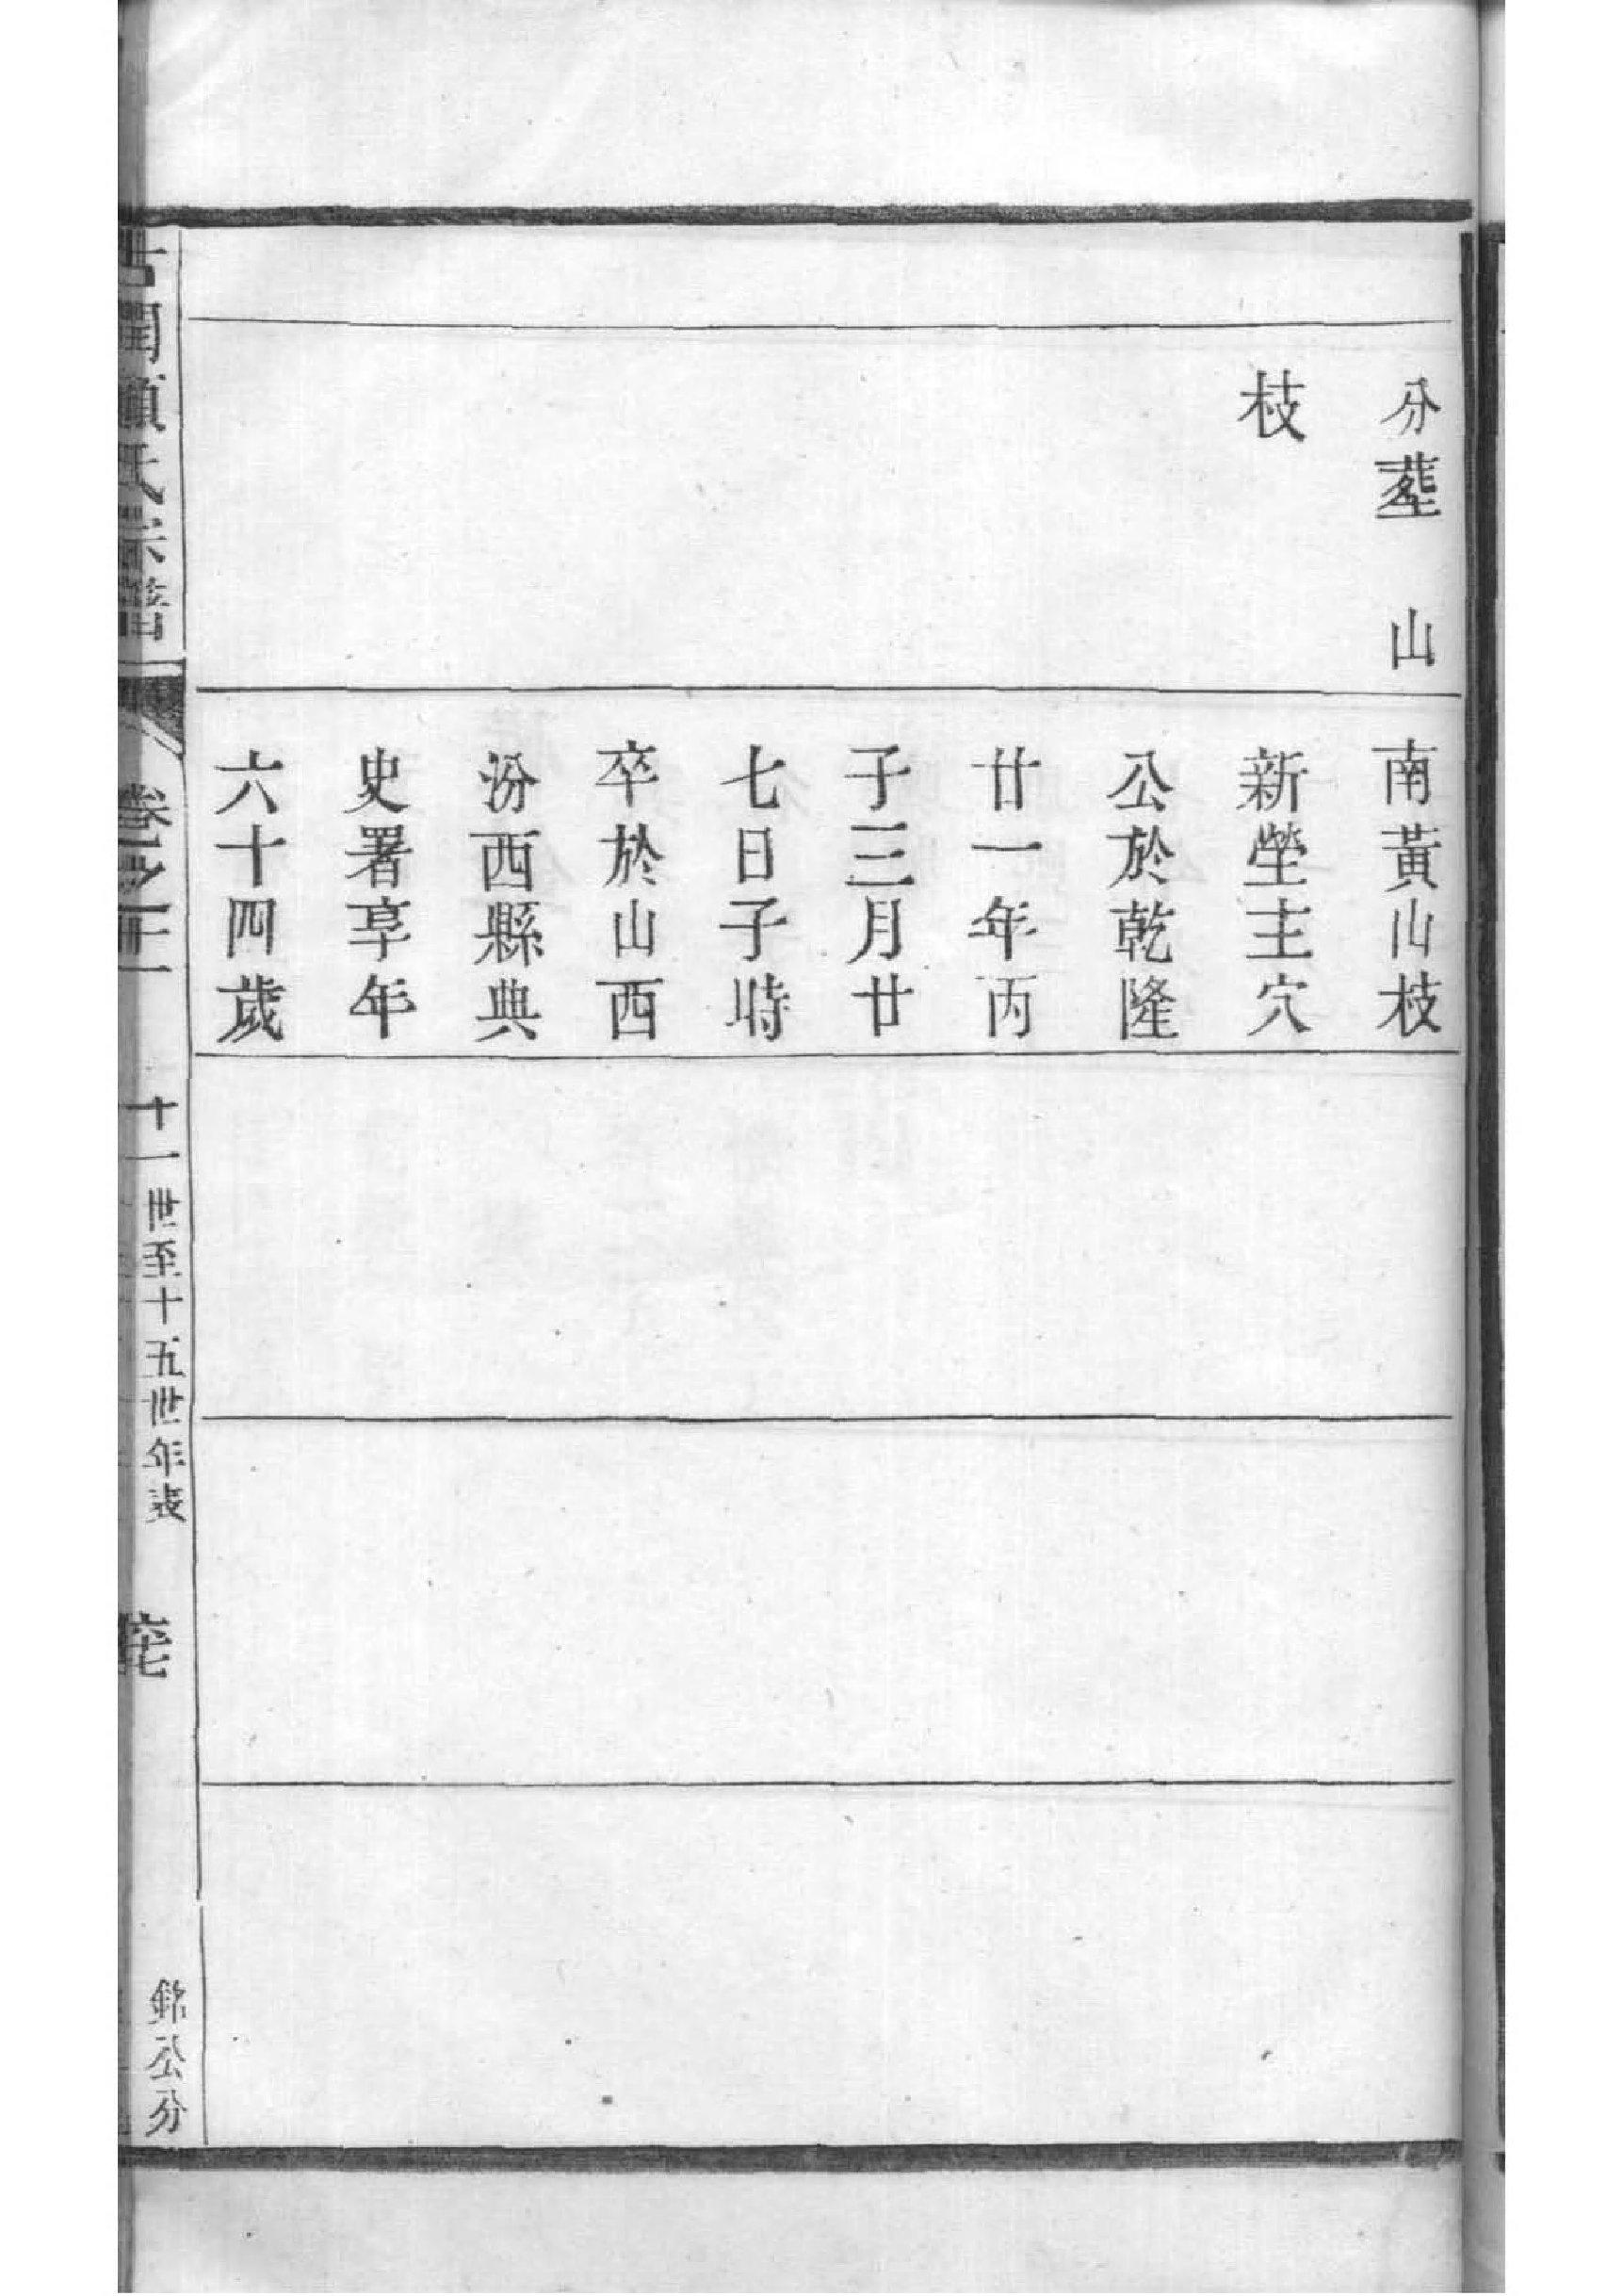 分塟　山
枝
南黃山枝
新塋主穴
公於乾隆
廿一年丙
子三月廿
七日子時
卒於山西
汾西縣典
史署享年
六十四歲
氏宗譜
卷之十一
十一世至十五世年表
銘公分